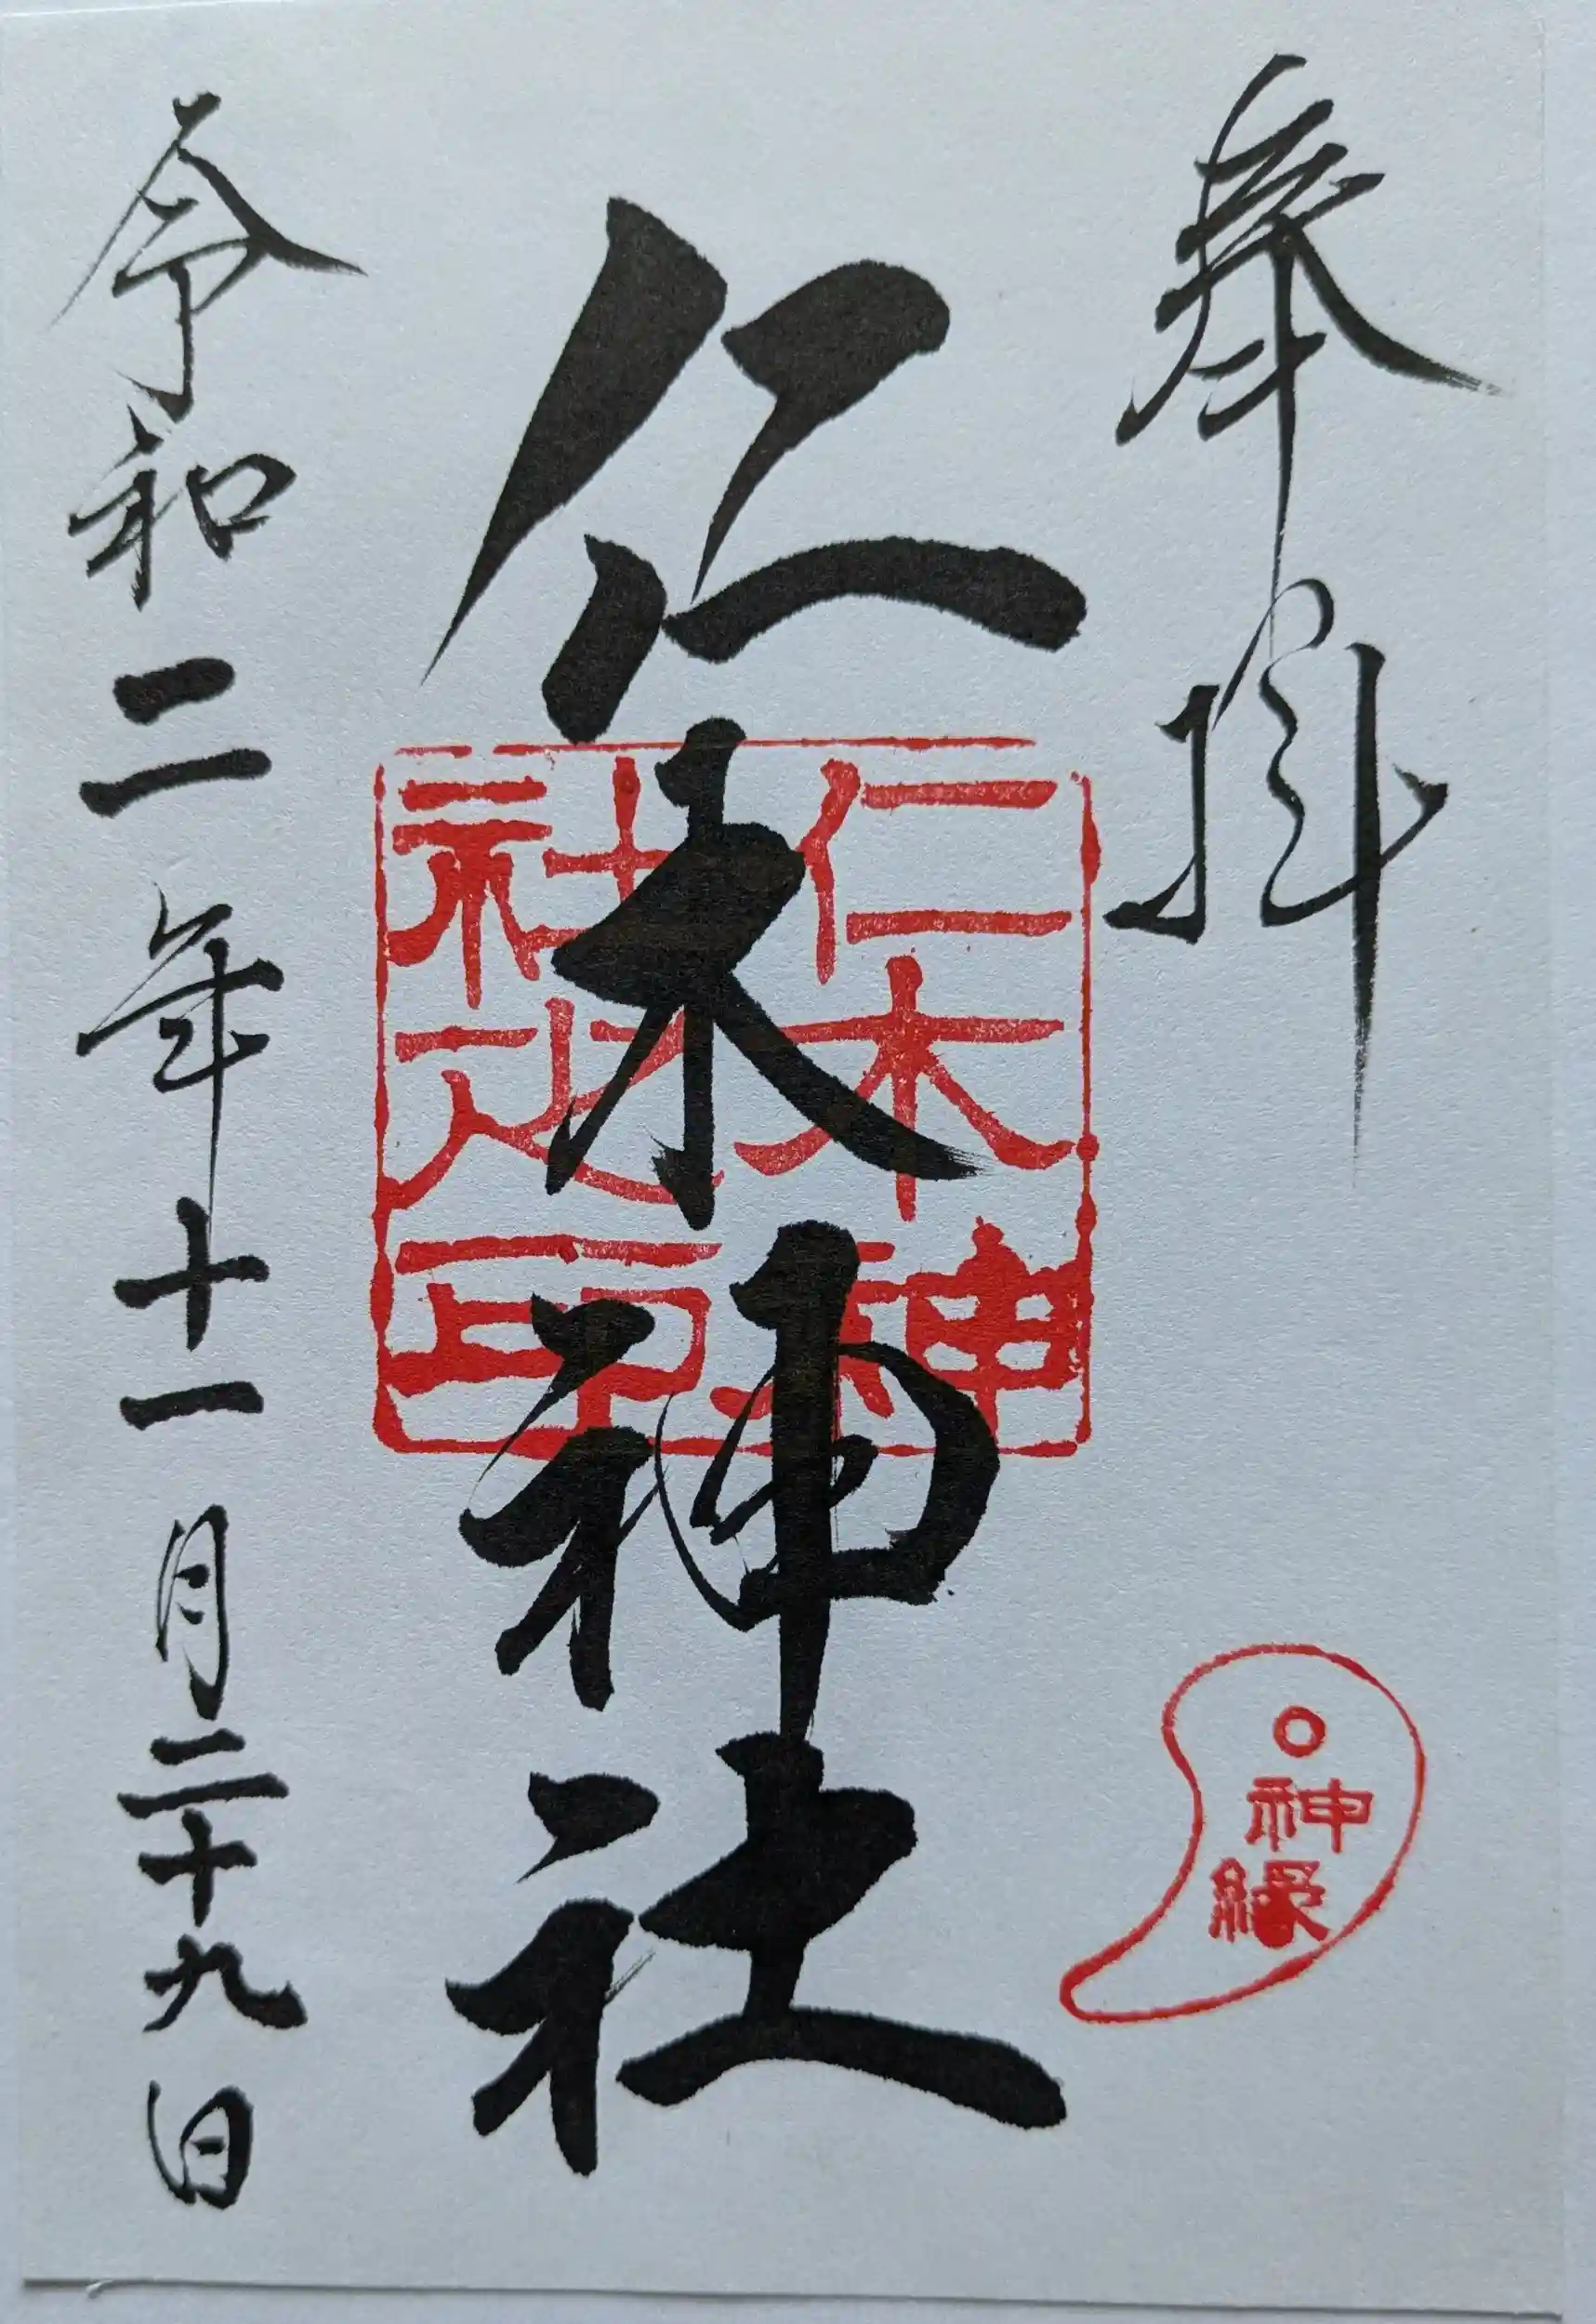 奉拝
神縁
仁木神社
仁木神
社之印
令和二年十一月二十九日